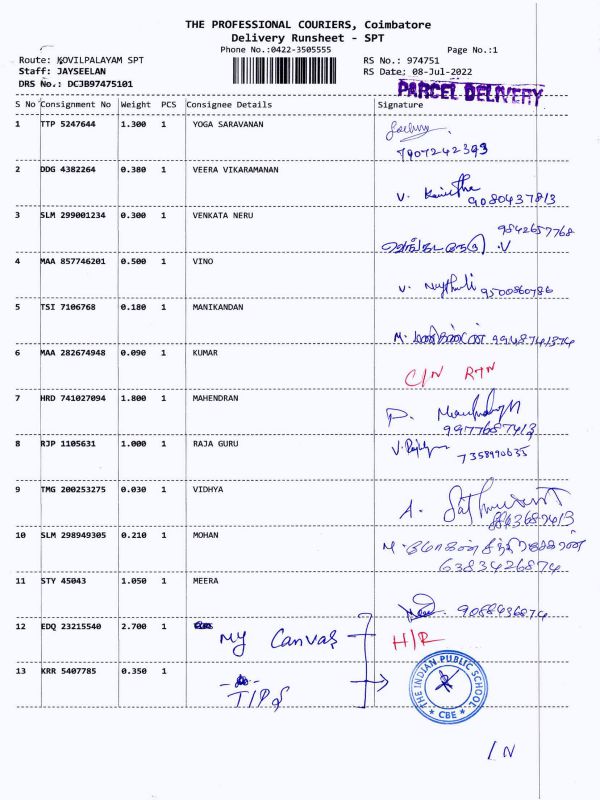 THE PROFESSIONAL COURIERS, Coimbatore
Delivery Runsheet - SPT
Phone No.:0422-3505555 Page No.:1
Route: KOVILPALAYAM SPT RS No.: 974751
Staff: JAYSEELAN RS Date: 08-Jul-2022
DRS No.: DCJB97475101
PARCEL DELIVERY
S No Consignment No Weight PCS Consignee Details Signature
1 TTP 5247644 1.300 1 YOGA SARAVANAN
7907242393
2 DDG 4382264 0.380 1 VEERA VIKARAMANAN
V. 9080437813
3 SLM 299001234 0.300 1 VENKATA NERU
9842657768
.V
4 MAA 857746201 0.500 1 VINO
V. 9500860786
5 TSI 7106768 0.180 1 MANIKANDAN
M. மணிகண்டன்
6 MAA 282674948 0.090 1 KUMAR
C/N RTN
7 HRD 741027094 1.800 1 MAHENDRAN
9977687413
8 RJP 1105631 1.000 1 RAJA GURU
7358990635
9 TMG 200253275 0.030 1 VIDHYA
A.
10 SLM 298949305 0.210 1 MOHAN
M.
6383426874
11 STY 45043 1.050 1 MEERA
12 EDQ 23215540 2.700 1 My Canvas H/R
13 KRR 5407785 0.350 1 TIPS
THE INDIAN PUBLIC SCHOOL
* CBE *
/ N